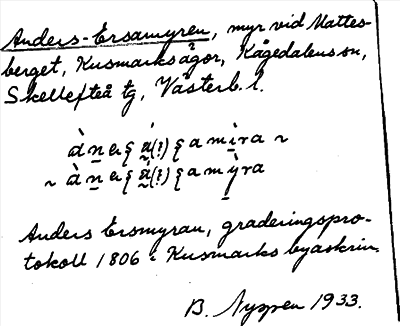 Anders-Ersamyren, myr vid Mattes-
berget, Kusmarksågor, Kågedalens sn,
Skellefteå tg, Västerb. l.
Anders Ersmyran, graderingspro-
tokoll 1806 i Kusmarks byaskrin.
B. Nyssen 1933.